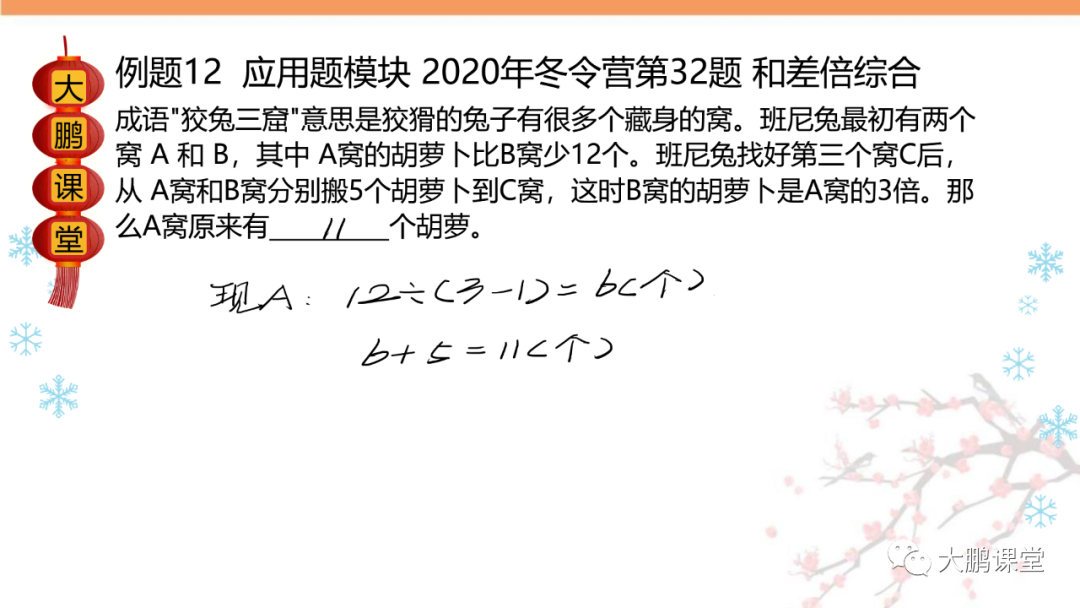 大鹏课堂
例题12 应用题模块 2020年冬令营第32题 和差倍综合
成语"狡兔三窟"意思是狡猾的兔子有很多个藏身的窝。班尼兔最初有两个
窝 A 和 B，其中 A窝的胡萝卜比B窝少12个。班尼兔找好第三个窝C后，
从 A窝和B窝分别搬5个胡萝卜到C窝，这时B窝的胡萝卜是A窝的3倍。那
么A窝原来有 11 个胡萝。
现A: 12÷(3-1)=6(个)
6+5=11(个)
大鹏课堂